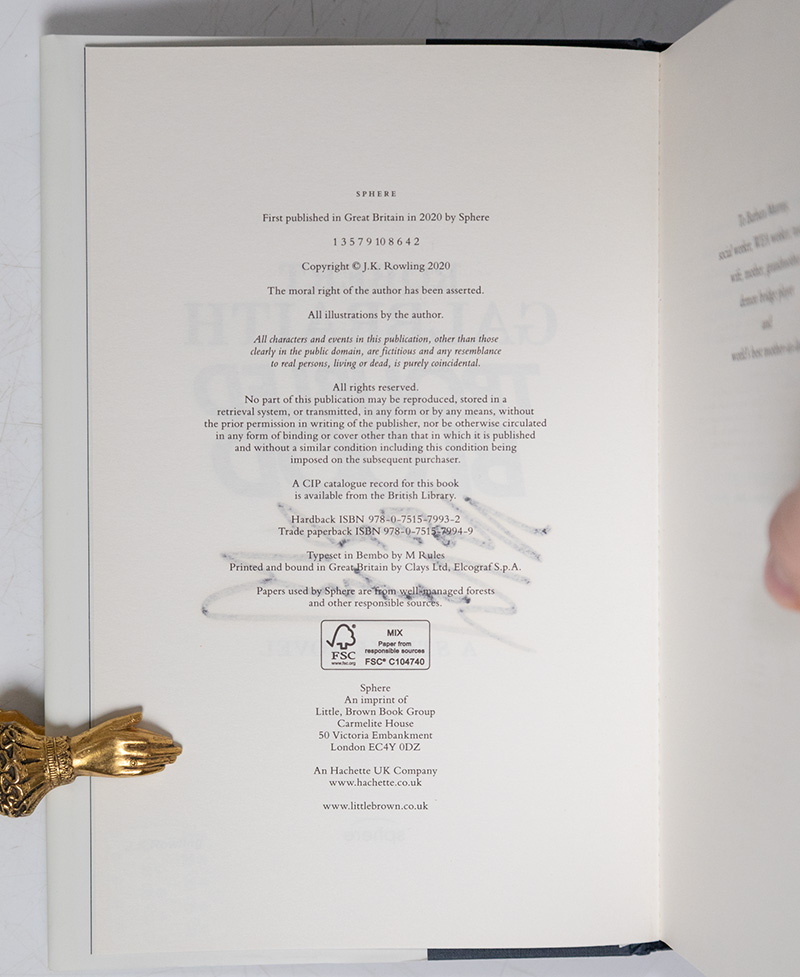 SPHERE
First published in Great Britain in 2020 by Sphere
1 3 5 7 9 10 8 6 4 2
Copyright © J.K. Rowling 2020
The moral right of the author has been asserted.
All illustrations by the author.
All characters and events in this publication, other than those
clearly in the public domain, are fictitious and any resemblance
to real persons, living or dead, is purely coincidental.
All rights reserved.
No part of this publication may be reproduced, stored in a
retrieval system, or transmitted, in any form or by any means, without
the prior permission in writing of the publisher, nor be otherwise circulated
in any form of binding or cover other than that in which it is published
and without a similar condition including this condition being
imposed on the subsequent purchaser.
A CIP catalogue record for this book
is available from the British Library.
Hardback ISBN 978-0-7515-7993-2
Trade paperback ISBN 978-0-7515-7994-9
Typeset in Bembo by M Rules
Printed and bound in Great Britain by Clays Ltd, Elcograf S.p.A.
Papers used by Sphere are from well-managed forests
and other responsible sources.
FSC
www.fsc.org
MIX
Paper from
responsible sources
FSC® C104740
Sphere
An imprint of
Little, Brown Book Group
Carmelite House
50 Victoria Embankment
London EC4Y 0DZ
An Hachette UK Company
www.hachette.co.uk
www.littlebrown.co.uk
To Barbara
social worker, WEA worker,
wife, mother, grandmother
demon bridge player
and
world's best mother-in-law